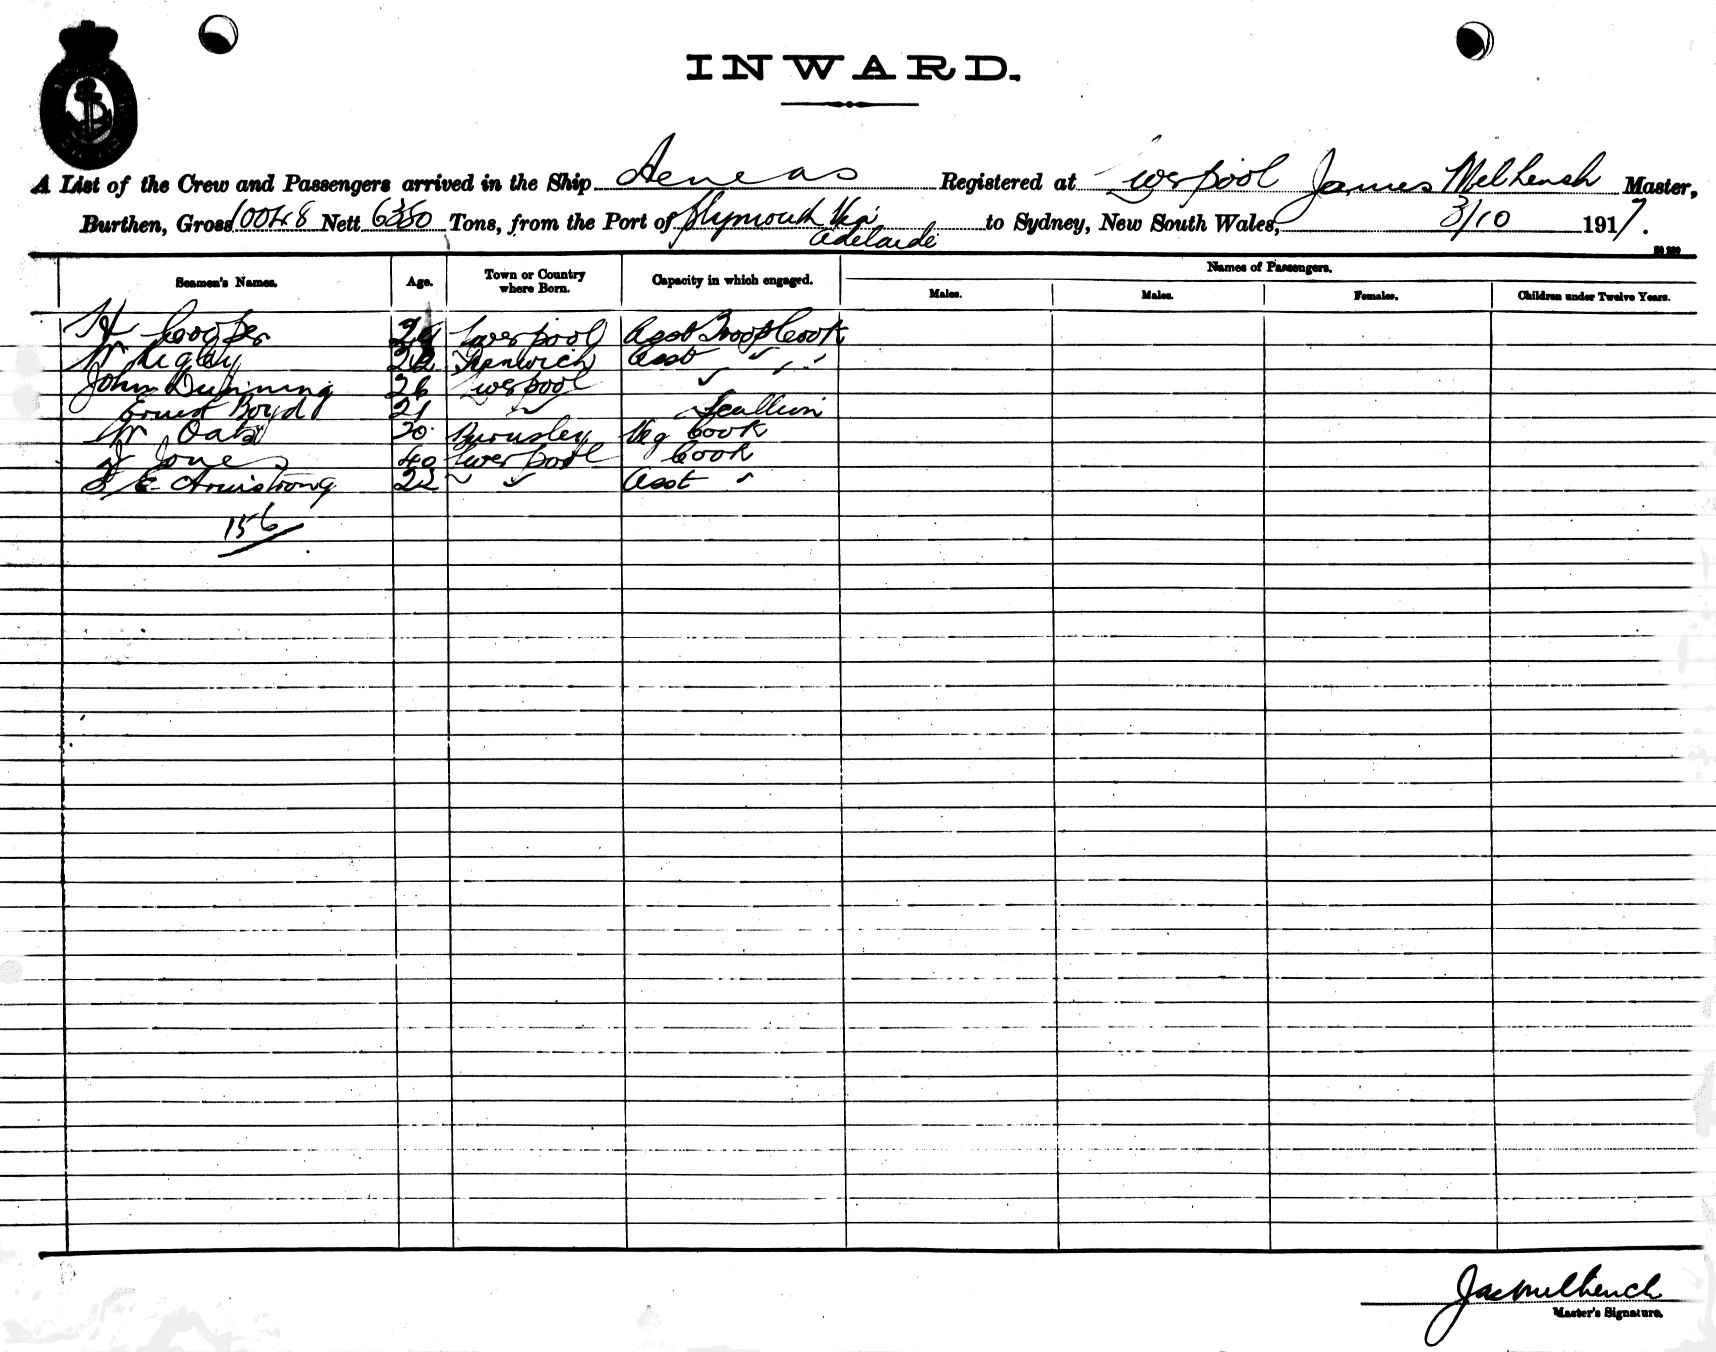 INWARD.
A List of the Crew and Passengers arrived in the Ship Aeneas Registered at Liverpool James Melhench Master,
Burthen, Gross 10048 Nett 6350 Tons, from the Port of Plymouth Via Adelaide to Sydney, New South Wales, 3/10 1917.
Names of Passengers.
Seamen's Names. Age. Town or Country where Born. Capacity in which engaged. Males. Males. Females. Children under Twelve Years.
H Cooper Liverpool Asst Troop Cook
W Rigby Asst " "
John Dunning 26 Liverpool " "
Ernest Boyd 21 " Scullion
W Oats 20 Burnsley Veg Cook
J Jones 40 Liverpool Cook
E Armstrong 22 " " Asst "
156
Jas Melhench
Master's Signature.